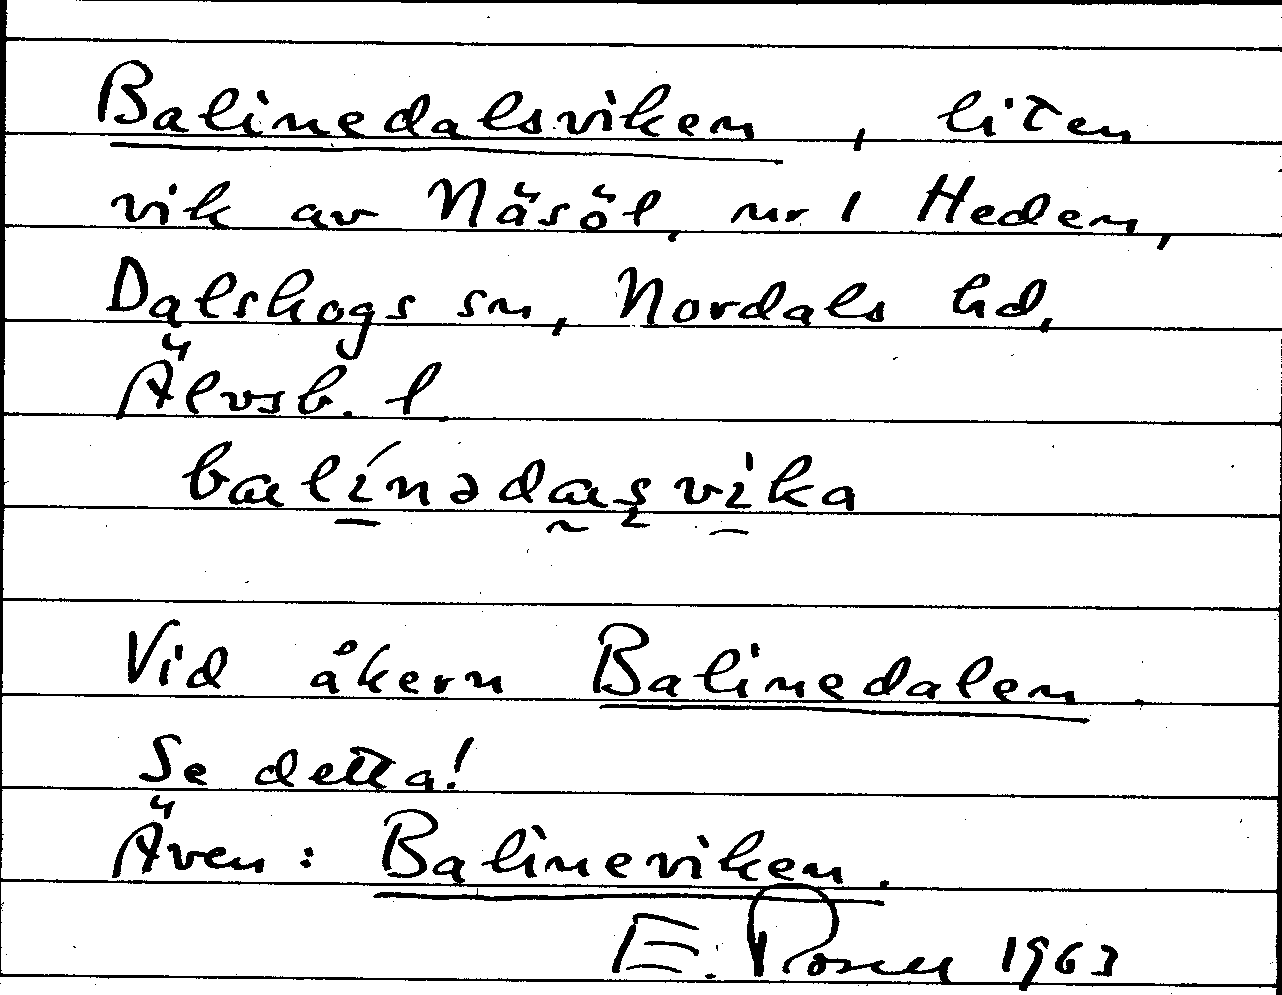 Balinedalsviken, liten
vik av Näsöl, nr 1 Heden,
Dalskogs sn, Nordals hd,
Älvsb. l.
balínədaʂvika
Vid åkern Balinedalen.
Se detta!
Även: Balineviken.
E. 1963